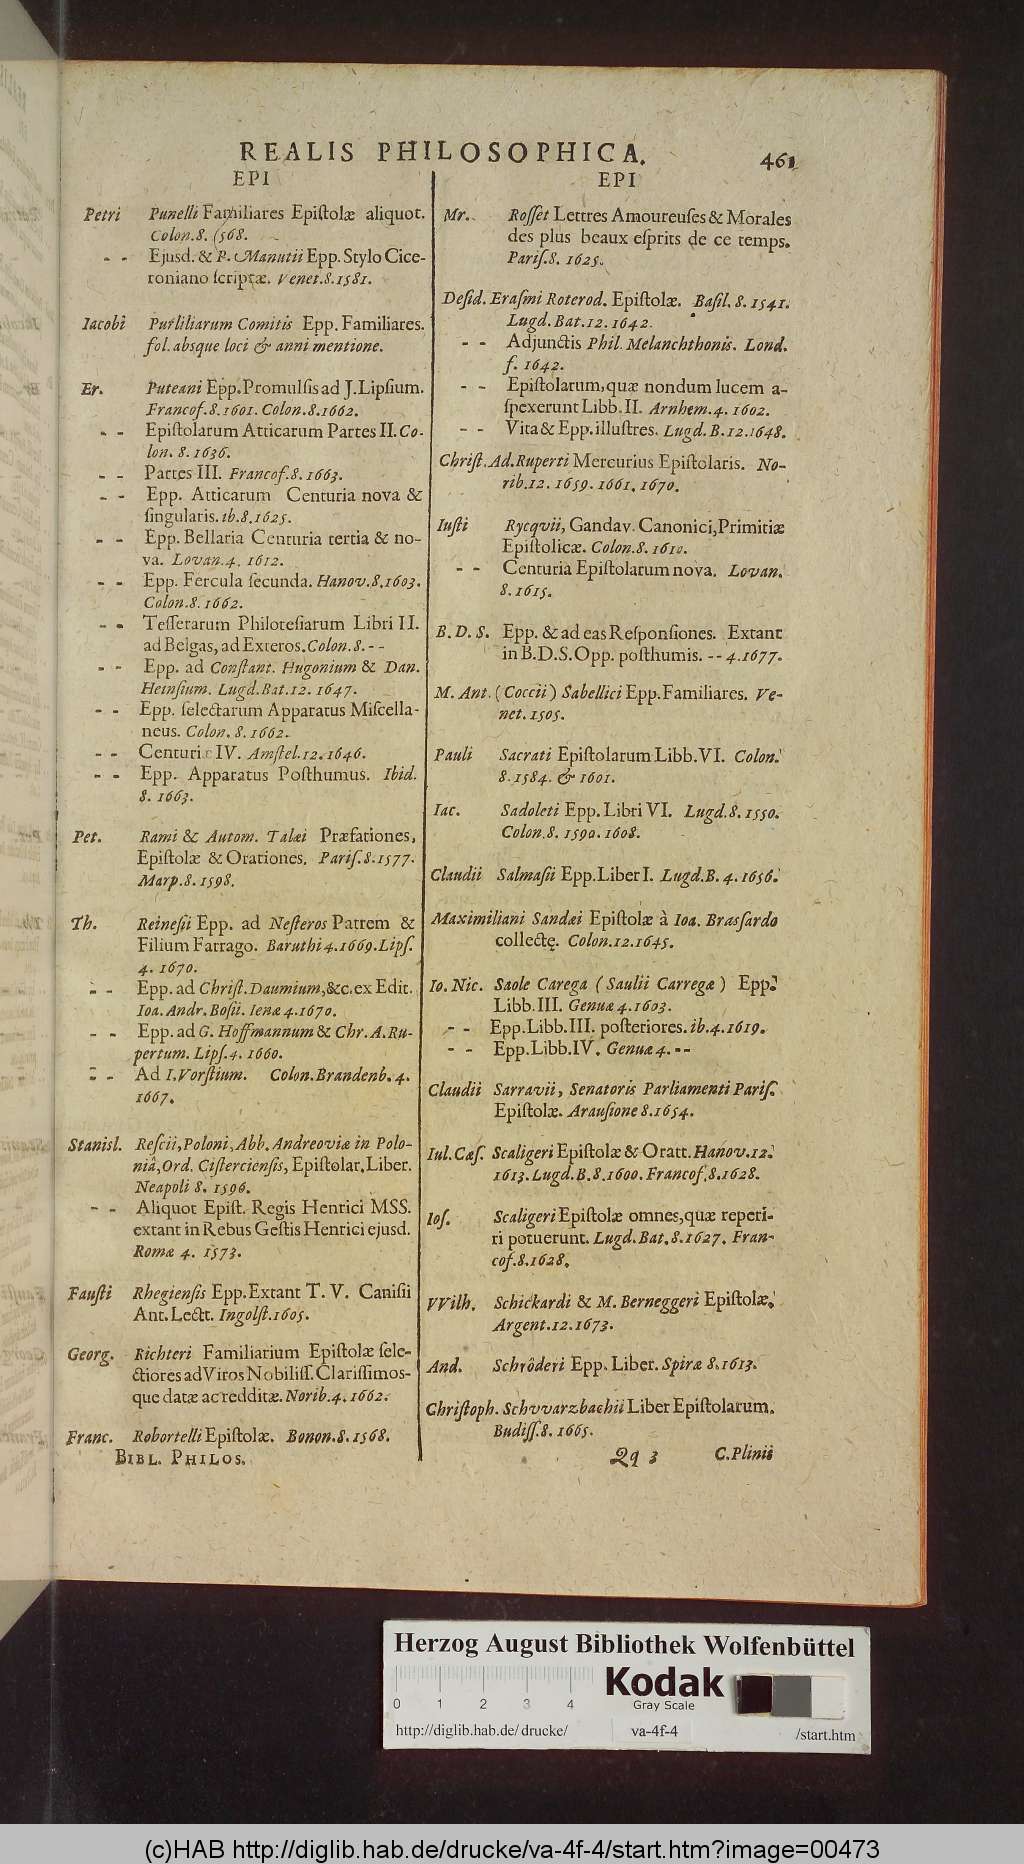 REALIS PHILOSOPHICA. 461
EPI
Petri Punelli Familiares Epistolæ aliquot.
Colon.8. 1568.
- - Ejusd. & P. Manutii Epp. Stylo Cice-
roniano scriptæ. Venet.8.1581.
Iacobi Purliliarum Comitis Epp. Familiares.
fol. absque loci & anni mentione.
Er. Puteani Epp. Promulsis ad J. Lipsium.
Francof.8.1601. Colon.8.1662.
- - Epistolarum Atticarum Partes II. Co-
lon. 8. 1636.
- - Partes III. Francof.8.1663.
- - Epp. Atticarum Centuria nova &
singularis. ib.8.1625.
- - Epp. Bellaria Centuria tertia & no-
va. Lovan.4. 1612.
- - Epp. Fercula secunda. Hanov.8.1603.
Colon.8.1662.
- - Tesserarum Philotesiarum Libri II.
ad Belgas, ad Exteros. Colon.8.--
- - Epp. ad Constant. Hugonium & Dan.
Heinsium. Lugd.Bat.12. 1647.
- - Epp. selectarum Apparatus Miscella-
neus. Colon. 8. 1662.
- - Centuriæ IV. Amstel.12.1646.
- - Epp. Apparatus Posthumus. Ibid.
8. 1663.
Pet. Rami & Autom. Talæi Præfationes,
Epistolæ & Orationes. Paris.8.1577.
Marp.8.1598.
Th. Reinesii Epp. ad Nesteros Patrem &
Filium Farrago. Baruthi 4.1669. Lips.
4. 1670.
- - Epp. ad Christ. Daumium, &c. ex Edit.
Ioa. Andr. Bosii. Ienæ 4.1670.
- - Epp. ad G. Hoffmannum & Chr. A. Ru-
pertum. Lips.4. 1660.
- - Ad I. Vorstium. Colon. Brandenb. 4.
1667.
Stanisl. Rescii, Poloni, Abb. Andreoviæ in Polo-
niâ, Ord. Cisterciensis, Epistolar. Liber.
Neapoli 8. 1596.
- - Aliquot Epist. Regis Henrici MSS.
extant in Rebus Gestis Henrici ejusd.
Romæ 4. 1573.
Fausti Rhegiensis Epp. Extant T. V. Canisii
Ant. Lectt. Ingolst.1605.
Georg. Richteri Familiarium Epistolæ sele-
ctiores ad Viros Nobiliss. Clarissimos-
que datæ ac redditæ. Norib.4.1662.
Franc. Robortelli Epistolæ. Bonon.8.1568.
BIBL. PHILOS.
EPI
Mr. Rosset Lettres Amoureuses & Morales
des plus beaux esprits de ce temps.
Paris.8. 1625.
Desid. Erasmi Roterod. Epistolæ. Basil. 8. 1541.
Lugd. Bat.12. 1642.
- - Adjunctis Phil. Melanchthonis. Lond.
f. 1642.
- - Epistolarum, quæ nondum lucem a-
spexerunt Libb. II. Arnhem.4. 1602.
- - Vita & Epp. illustres. Lugd. B.12.1648.
Christ. Ad. Ruperti Mercurius Epistolaris. No-
rib.12. 1659. 1661. 1670.
Iusti Rycqvii, Gandav. Canonici, Primitiæ
Epistolicæ. Colon.8. 1610.
- - Centuria Epistolarum nova. Lovan.
8. 1615.
B. D. S. Epp. & ad eas Responsiones. Extant
in B.D.S. Opp. posthumis. -- 4.1677.
M. Ant. (Coccii) Sabellici Epp. Familiares. Ve-
net. 1505.
Pauli Sacrati Epistolarum Libb. VI. Colon.
8. 1584. & 1601.
Iac. Sadoleti Epp. Libri VI. Lugd.8.1550.
Colon.8. 1590. 1608.
Claudii Salmasii Epp. Liber I. Lugd. B. 4. 1656.
Maximiliani Sandæi Epistolæ à Ioa. Brassardo
collectę. Colon.12.1645.
Io. Nic. Saole Carega (Saulii Carregæ) Epp.
Libb. III. Genuæ 4.1603.
- - Epp. Libb. III. posteriores. ib.4.1619.
- - Epp. Libb. IV. Genuæ 4. --
Claudii Sarravii, Senatoris Parliamenti Paris.
Epistolæ. Arausione 8.1654.
Iul. Cæs. Scaligeri Epistolæ & Oratt. Hanov.12.
1613. Lugd. B.8.1600. Francof.8.1628.
Ios. Scaligeri Epistolæ omnes, quæ reperi-
ri potuerunt. Lugd. Bat.8.1627. Fran-
cof.8.1628.
VVilh. Schickardi & M. Berneggeri Epistolæ.
Argent.12.1673.
And. Schröderi Epp. Liber. Spiræ 8.1613.
Christoph. Schvvarzbachii Liber Epistolarum.
Budiss.8. 1665.
Qq 3 C. Plinii
Herzog August Bibliothek Wolfenbüttel
Kodak
Gray Scale
0 1 2 3 4
http://diglib.hab.de/drucke/ va-4f-4 /start.htm
(c)HAB http://diglib.hab.de/drucke/va-4f-4/start.htm?image=00473